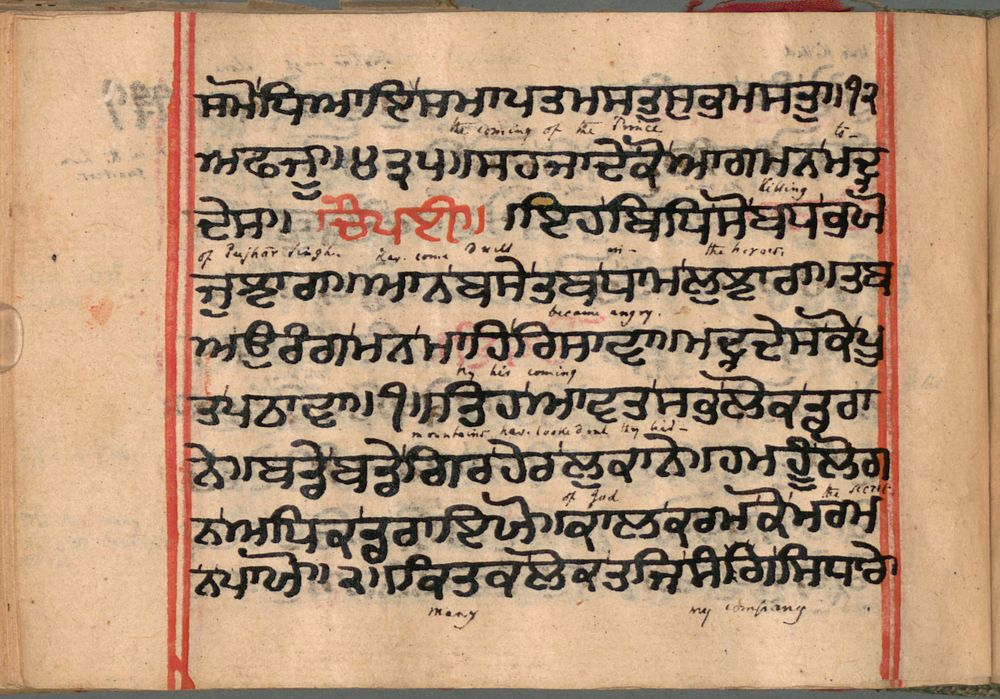 ਸਮੋਧਿਆਇ ਸਮਾਪਤਮ ਸਤੁ ਸੁਭਮ ਸਤੁ॥੧੨
the coming of the Prince to
ਅਫਜੂ॥੪੩੫॥ ਸਹਜਾਦੇ ਕੋ ਆਗਮਨ ਮਦ੍ਰ
killing
ਦੇਸ॥ ਚੌਪਈ॥ ॥ਇਹ ਬਿਧਿ ਸੋ ਬਧ ਭਯੋ
of Jujhár Singh. hav. come dwell in the heroes.
ਜੁਝਾਰਾ॥ਆਨ ਬਸੇ ਤਬ ਧਾਮ ਲੁਝਾਰਾ॥ਤਬ
became angry.
ਅਉਰੰਗ ਮਨ ਮਾਹਿ ਰਿਸਾਵਾ॥ਮਦ੍ਰ ਦੇਸ ਕੋ ਪੂ
by his coming
ਤ ਪਠਾਵਾ॥੧॥ਤਿਹ ਆਵਤ ਸਭ ਲੋਕ ਡਰਾ
mountains have looked and they hid
ਨੇ॥ਬਡੇ ਬਡੇ ਗਿਰ ਹੇਰ ਲੁਕਾਨੇ॥ਹਮ ਹੂੰ ਲੋਗ
of God the secret.
ਨ ਅਧਿਕ ਡਰਾਇਓ॥ਕਾਲ ਕਰਮ ਕੋ ਮਰਮ
ਨ ਪਾਯੋ॥੨॥ਕਿਤਕ ਲੋਕ ਤਜਿ ਸੰਗਿ ਸਿਧਾਰੇ
many my company